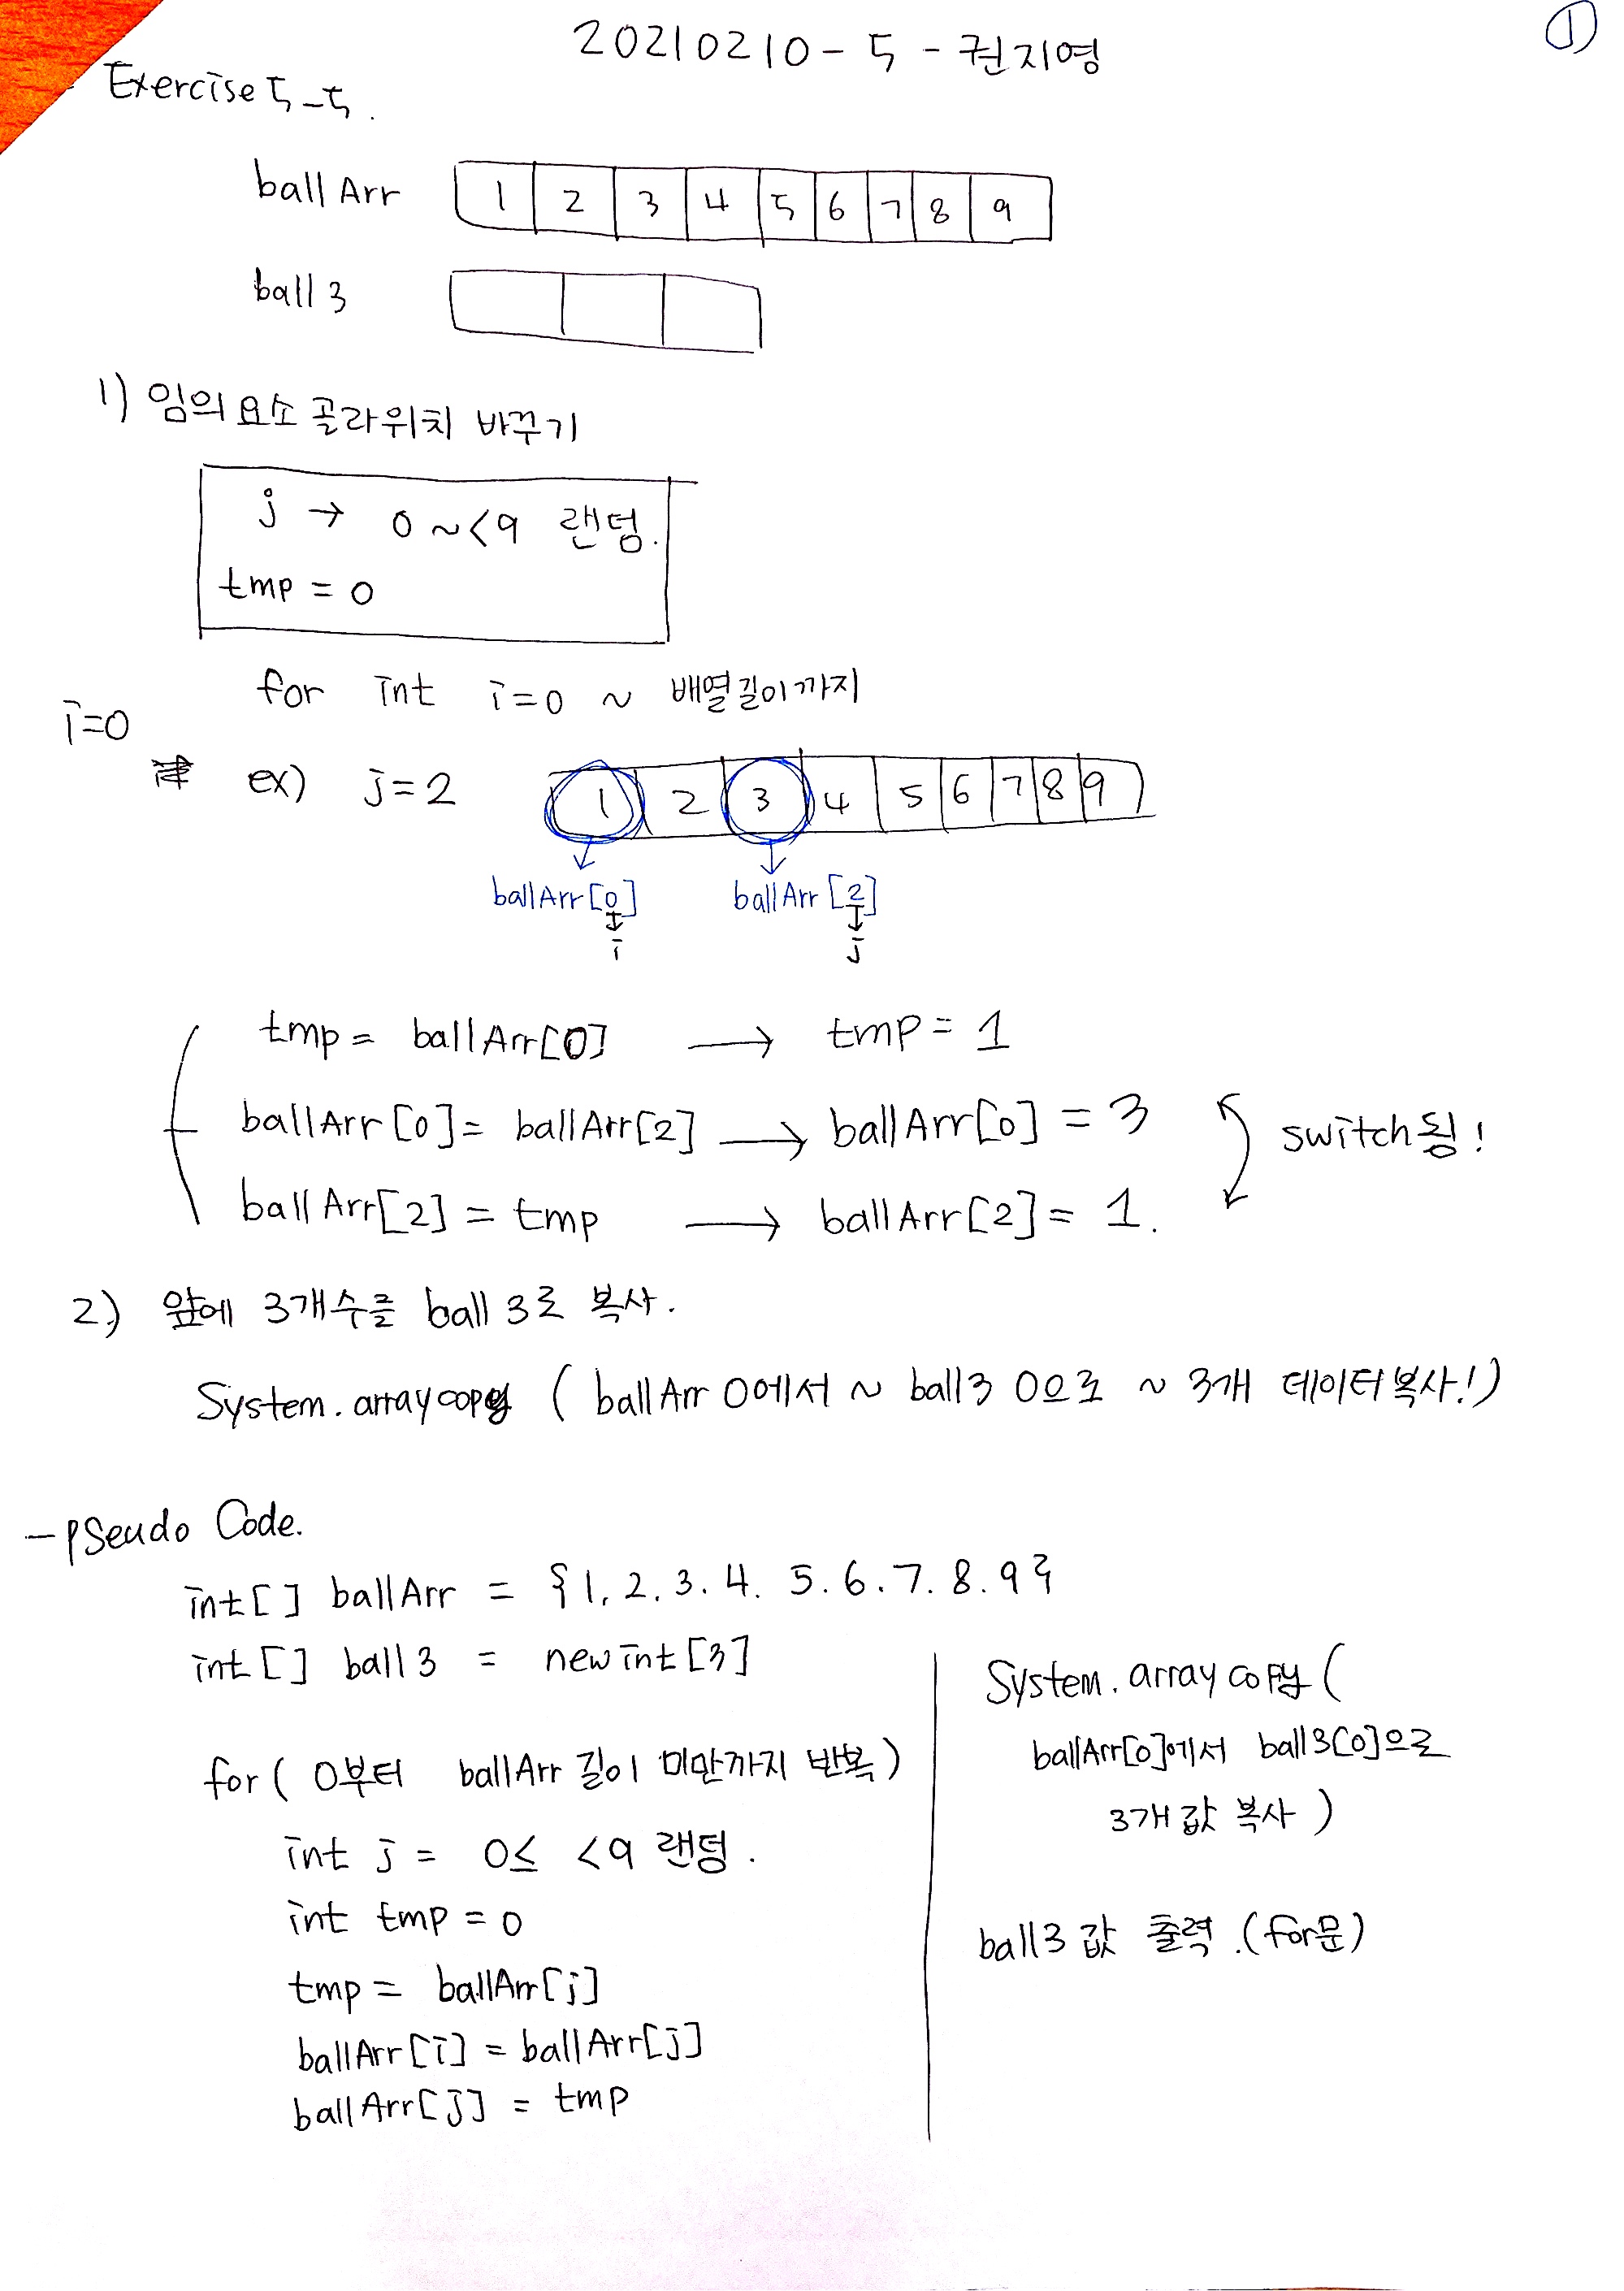 ①
20210210 - 5 - 권지영
Exercise 5-5.
ballArr 1 2 3 4 5 6 7 8 9
ball3
1) 임의 요소 골라 위치 바꾸기
j → 0 ~ <9 랜덤.
tmp = 0
for int i=0 ~ 배열길이까지
i=0
ex) j=2 1 2 3 4 5 6 7 8 9
ballArr[0] ballArr[2]
i j
tmp = ballArr[0] → tmp = 1
ballArr[0] = ballArr[2] → ballArr[0] = 3
switch됨!
ballArr[2] = tmp → ballArr[2] = 1.
2) 앞에 3개수를 ball3로 복사.
System.arraycopy ( ballArr 0에서 ~ ball3 0으로 ~ 3개 데이터복사!)
- pseudo Code.
int[] ballArr = {1, 2, 3. 4. 5. 6. 7. 8. 9}
int[] ball3 = new int[3]
for ( 0부터 ballArr 길이 미만까지 반복)
int j = 0≤ <9 랜덤.
int tmp = 0
tmp = ballArr[j]
ballArr[i] = ballArr[j]
ballArr[j] = tmp
System.arraycopy (
ballArr[0]에서 ball3[0]으로
3개 값 복사 )
ball3 값 출력.(for문)